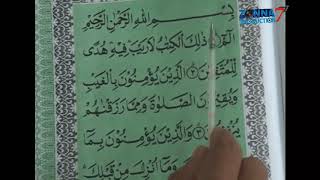 بِسْمِ اللهِ الرَّحْمٰنِ الرَّحِيْمِ
الٓمّٓ ذٰلِكَ الْكِتٰبُ لَارَيْبَ فِيْهِ هُدًى
لِّلْمُتَّقِيْنَ ٢ الَّذِيْنَ يُؤْمِنُوْنَ بِالْغَيْبِ
وَيُقِيْمُوْنَ الصَّلٰوةَ وَمِمَّا رَزَقْنٰهُمْ
يُنْفِقُوْنَ ٣ وَالَّذِيْنَ يُؤْمِنُوْنَ بِمَا
وَمَآ اُنْزِلَ مِنْ قَبْلِكَ